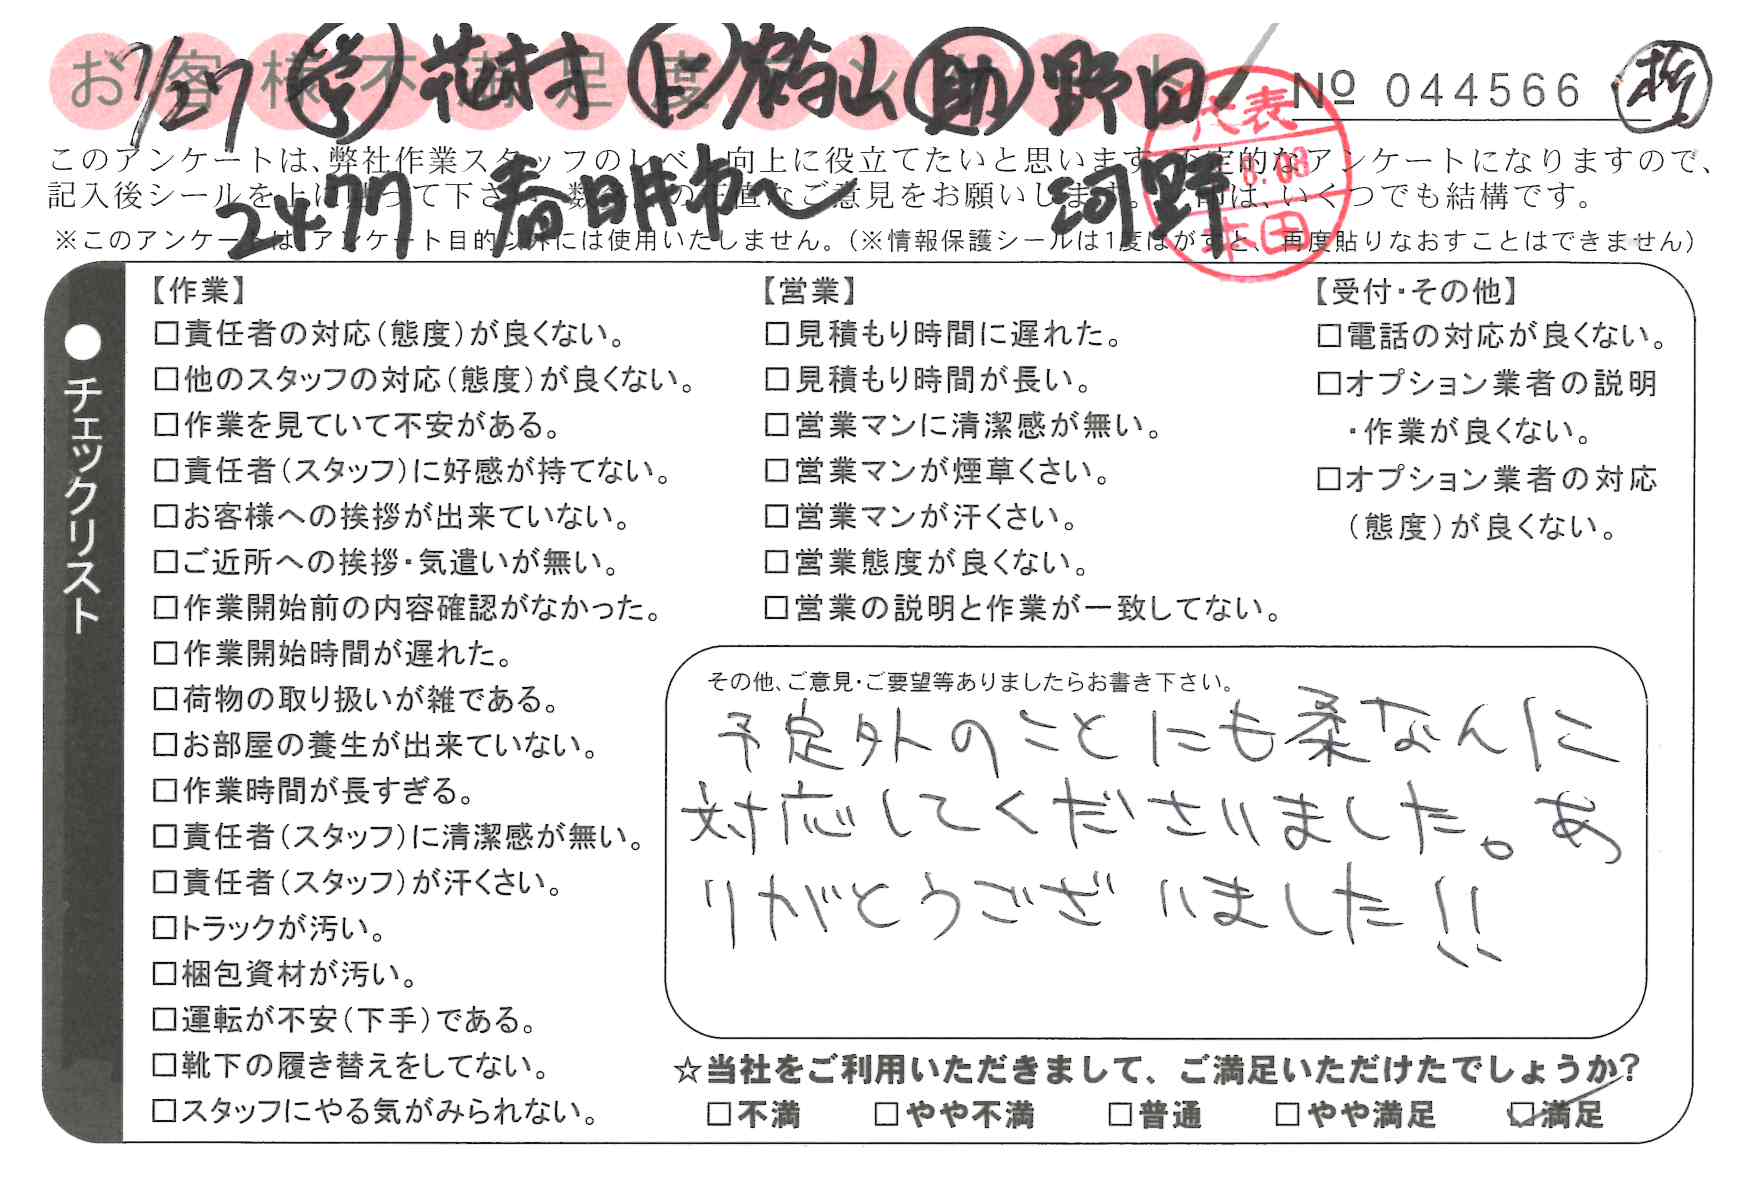 お客様不満足度アンケート
7/27 学 花村 上 鶴山 助 野田
№ 044566
代表
8.08
本田
このアンケートは、弊社作業スタッフのレベル向上に役立てたいと思います。不定的なアンケートになりますので、
記入後シールを上に貼って下さい。数多くの正直なご意見をお願いします。印は、いくつでも結構です。
2477 春日井市〜 河野
※このアンケートは、アンケート目的以外には使用いたしません。（※情報保護シールは1度はがすと、再度貼りなおすことはできません）
●チェックリスト
【作業】
□責任者の対応（態度）が良くない。
□他のスタッフの対応（態度）が良くない。
□作業を見ていて不安がある。
□責任者（スタッフ）に好感が持てない。
□お客様への挨拶が出来ていない。
□ご近所への挨拶・気遣いが無い。
□作業開始前の内容確認がなかった。
□作業開始時間が遅れた。
□荷物の取り扱いが雑である。
□お部屋の養生が出来ていない。
□作業時間が長すぎる。
□責任者（スタッフ）に清潔感が無い。
□責任者（スタッフ）が汗くさい。
□トラックが汚い。
□梱包資材が汚い。
□運転が不安（下手）である。
□靴下の履き替えをしてない。
□スタッフにやる気がみられない。
【営業】
□見積もり時間に遅れた。
□見積もり時間が長い。
□営業マンに清潔感が無い。
□営業マンが煙草くさい。
□営業マンが汗くさい。
□営業態度が良くない。
□営業の説明と作業が一致してない。
【受付・その他】
□電話の対応が良くない。
□オプション業者の説明
・作業が良くない。
□オプション業者の対応
（態度）が良くない。
その他、ご意見・ご要望等ありましたらお書き下さい。
予定外のことにも柔なんに
対応してくださいました。あ
りがとうございました!!
☆当社をご利用いただきまして、ご満足いただけたでしょうか?
□不満 □やや不満 □普通 □やや満足 ☑満足